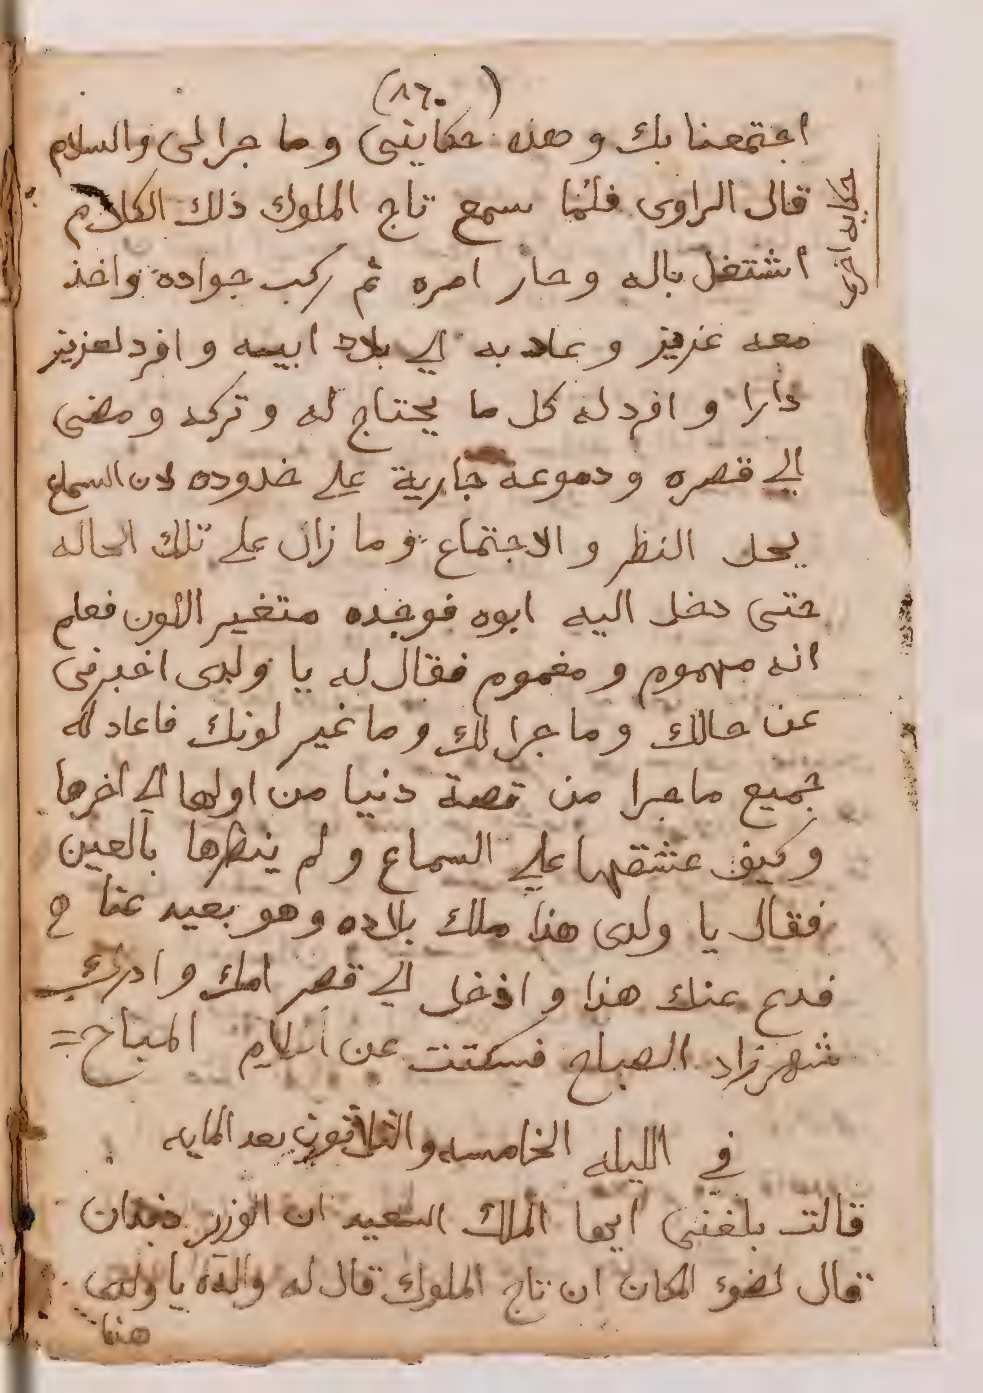 (٨٦٠)
اجتمعنا بك وهذه حكايتي وما جرا لي والسلام
قال الراوى فلما سمع تاج الملوك ذلك الكلام
اشتغل باله وحار امره ثم ركب جواده واخذ
معه عزيز وعاد به الي بلاد ابيه وافرد لعزيز
دارا وافرد له كل ما يحتاج له وتركه ومضى
الي قصره ودموعه جارية علي خدوده لان السماع
يحل النظر والاجتماع وما زال علي تلك الحاله
حتى دخل اليه ابوه فوجده متغير اللون فعلم
انه مهموم ومغموم فقال له يا ولدى اخبرنى
عن حالك وما جرا لك وما غير لونك فاعاد له
جميع ما جرا من قصة دنيا من اولها الي اخرها
وكيف عشقها علي السماع ولم ينظرها بالعين
فقال يا ولدى هذا ملك بلاده وهو بعيد عنا
فدع عنك هذا وادخل الي قصر امك وادرك
شهرزاد الصباح فسكتت عن الكلام المباح =
في الليله الخامسه والثلاثون بعد المايه
قالت بلغنى ايها الملك السعيد ان الوزير دندان
قال لضوء المكان ان تاج الملوك قال له والده يا ولدى
هذا
حكايه اخرى